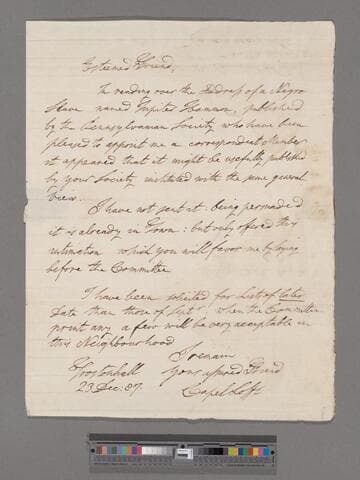 Esteemed Friend,
In reading over the Address of a Negro
Slave named Jupiter Hammon, published
by the Pennsylvanian Society who have been
pleased to appoint me a correspondent Member
it appeared that it might be usefully published
by your Society instituted with the same general
View.
I have not sent it: being persuaded
it is already in Town: but only offered this
intimation which you will favor me by laying
before the Committee
I have been solicited for Lists of later
Date than those of Septr. when the Committee
print any a few will be very acceptable in
this Neighbourhood
I remain
Troston hall
your assured Friend
23 Dec: 87.
Capel Lofft